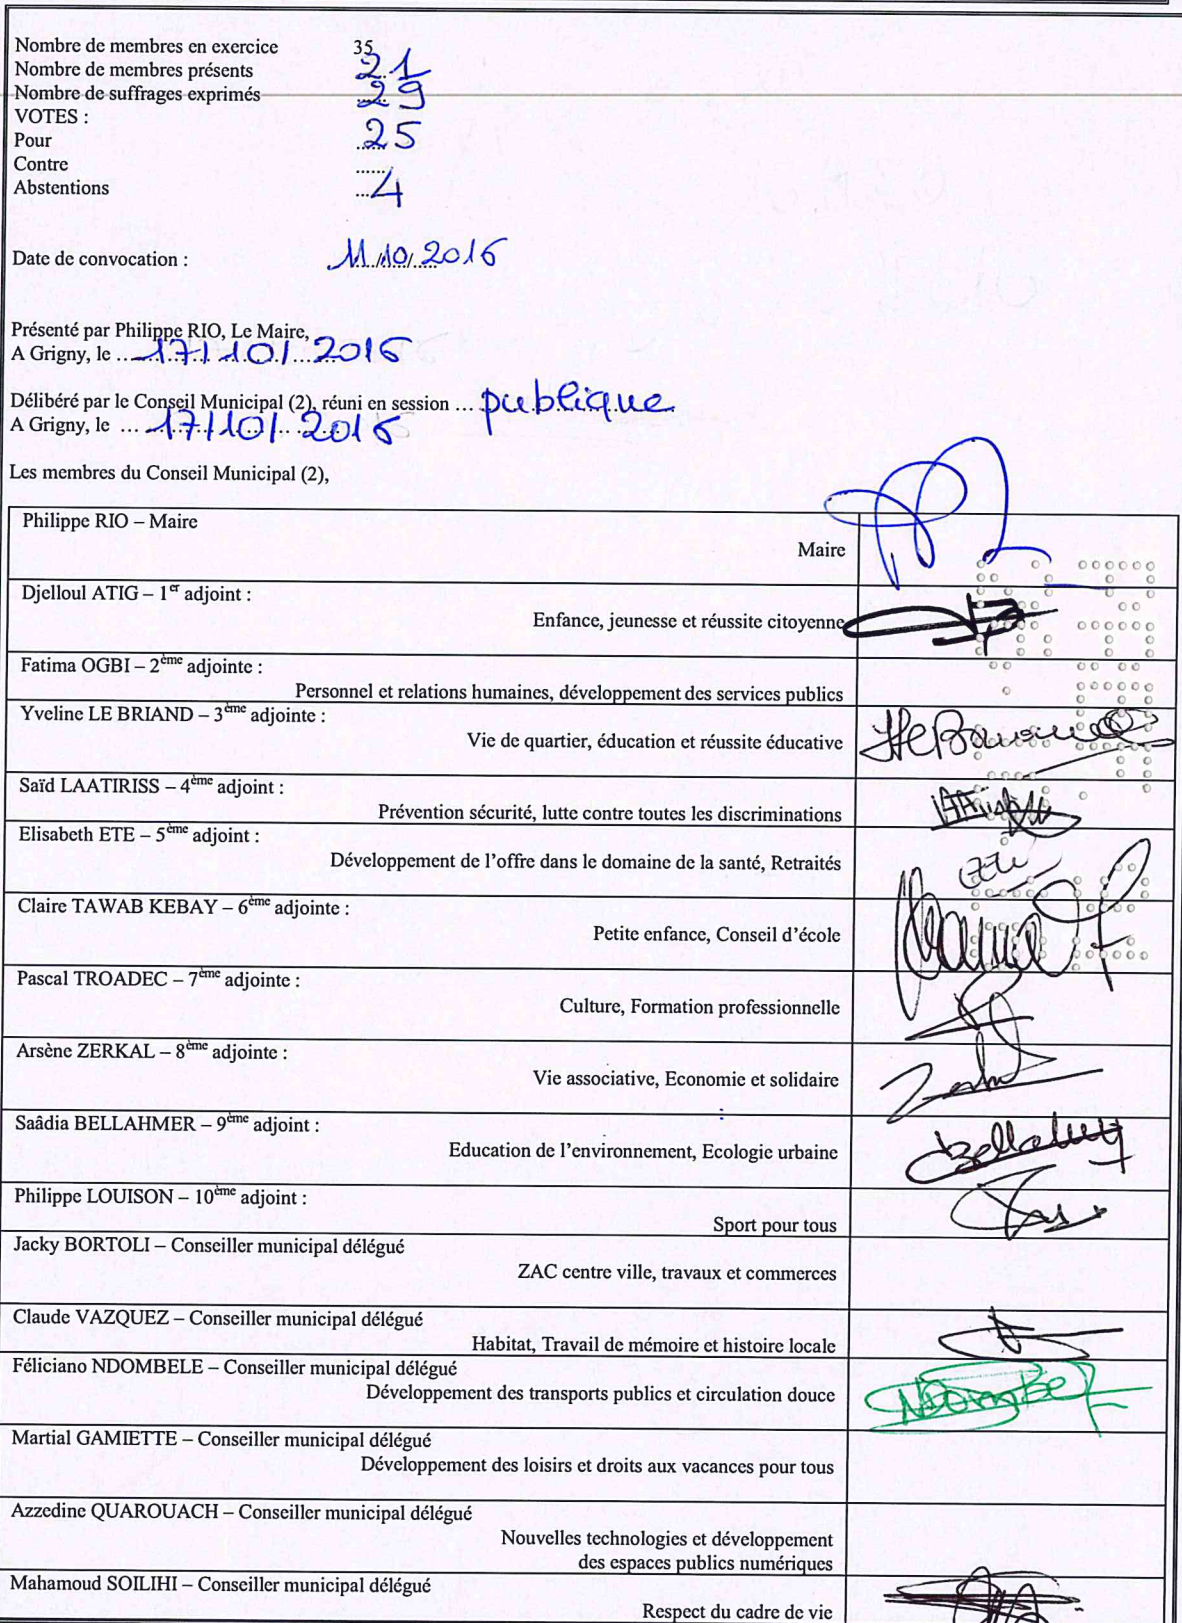 Nombre de membres en exercice 35
Nombre de membres présents 21
Nombre de suffrages exprimés 29
VOTES :
Pour 25
Contre ......
Abstentions 4
Date de convocation : 11/10/2016
Présenté par Philippe RIO, Le Maire,
A Grigny, le 17/10/2016
Délibéré par le Conseil Municipal (2), réuni en session ... publique
A Grigny, le ... 17/10/2016
Les membres du Conseil Municipal (2),
Philippe RIO – Maire
Maire
Djelloul ATIG – 1er adjoint :
Enfance, jeunesse et réussite citoyenne
Fatima OGBI – 2ème adjointe :
Personnel et relations humaines, développement des services publics
Yveline LE BRIAND – 3ème adjointe :
Vie de quartier, éducation et réussite éducative
Saïd LAATIRISS – 4ème adjoint :
Prévention sécurité, lutte contre toutes les discriminations
Elisabeth ETE – 5ème adjoint :
Développement de l'offre dans le domaine de la santé, Retraités
Claire TAWAB KEBAY – 6ème adjointe :
Petite enfance, Conseil d'école
Pascal TROADEC – 7ème adjointe :
Culture, Formation professionnelle
Arsène ZERKAL – 8ème adjointe :
Vie associative, Economie et solidaire
Saâdia BELLAHMER – 9ème adjoint :
Education de l'environnement, Ecologie urbaine
Philippe LOUISON – 10ème adjoint :
Sport pour tous
Jacky BORTOLI – Conseiller municipal délégué
ZAC centre ville, travaux et commerces
Claude VAZQUEZ – Conseiller municipal délégué
Habitat, Travail de mémoire et histoire locale
Féliciano NDOMBELE – Conseiller municipal délégué
Développement des transports publics et circulation douce
Martial GAMIETTE – Conseiller municipal délégué
Développement des loisirs et droits aux vacances pour tous
Azzedine QUAROUACH – Conseiller municipal délégué
Nouvelles technologies et développement
des espaces publics numériques
Mahamoud SOILIHI – Conseiller municipal délégué
Respect du cadre de vie